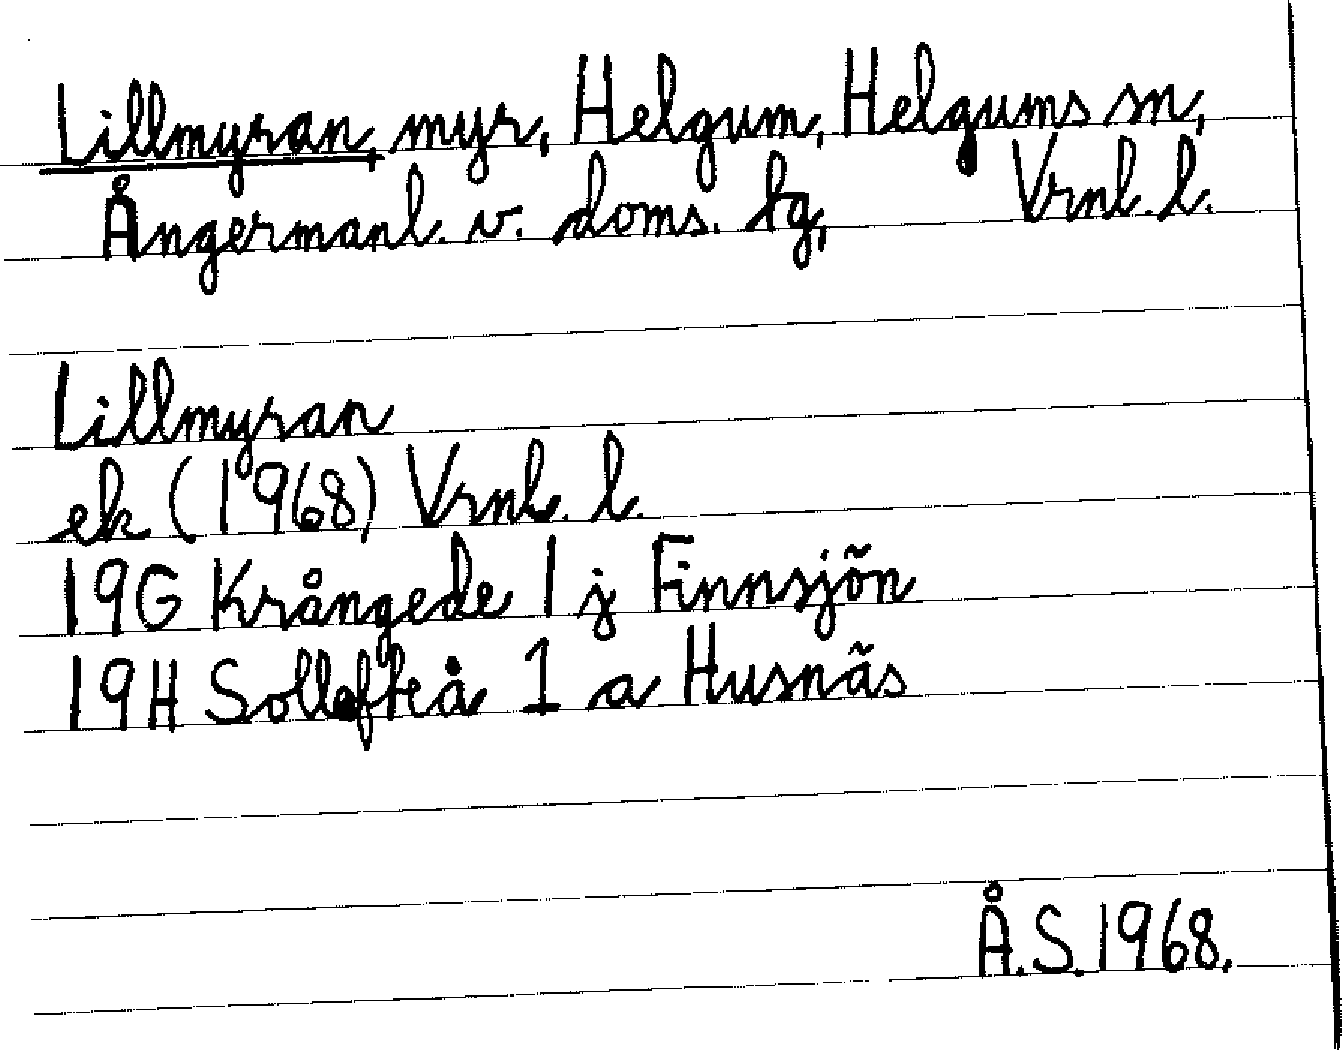 Lillmyran, myr, Helgum, Helgums sn,
Ångermanl. v. doms. tg, Vrnl. l.
Lillmyran
ek (1968) Vrnl. l.
19G Krångede 1 j Finnsjön
19H Sollefteå 1 a Husnäs
Å.S. 1968.